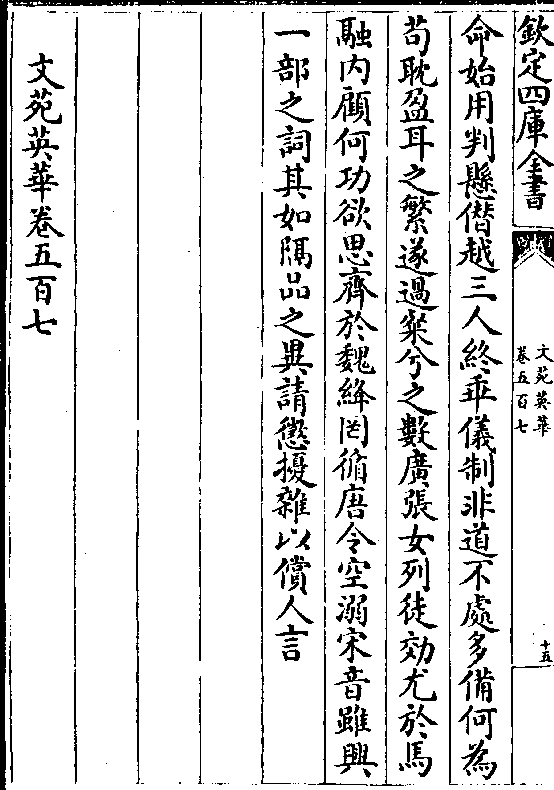 欽定四庫全書
文苑英華
卷五百七
十五
命始用判懸僭越三人終乖儀制非道不處多備何為
苟耽盈耳之繁遂過粲兮之數廣張女列徒効尤於馬
融内顧何功欲思齊於魏絳罔循唐令空溺宋音雖興
一部之詞其如隔品之異請懲擾雜以償人言
文苑英華卷五百七